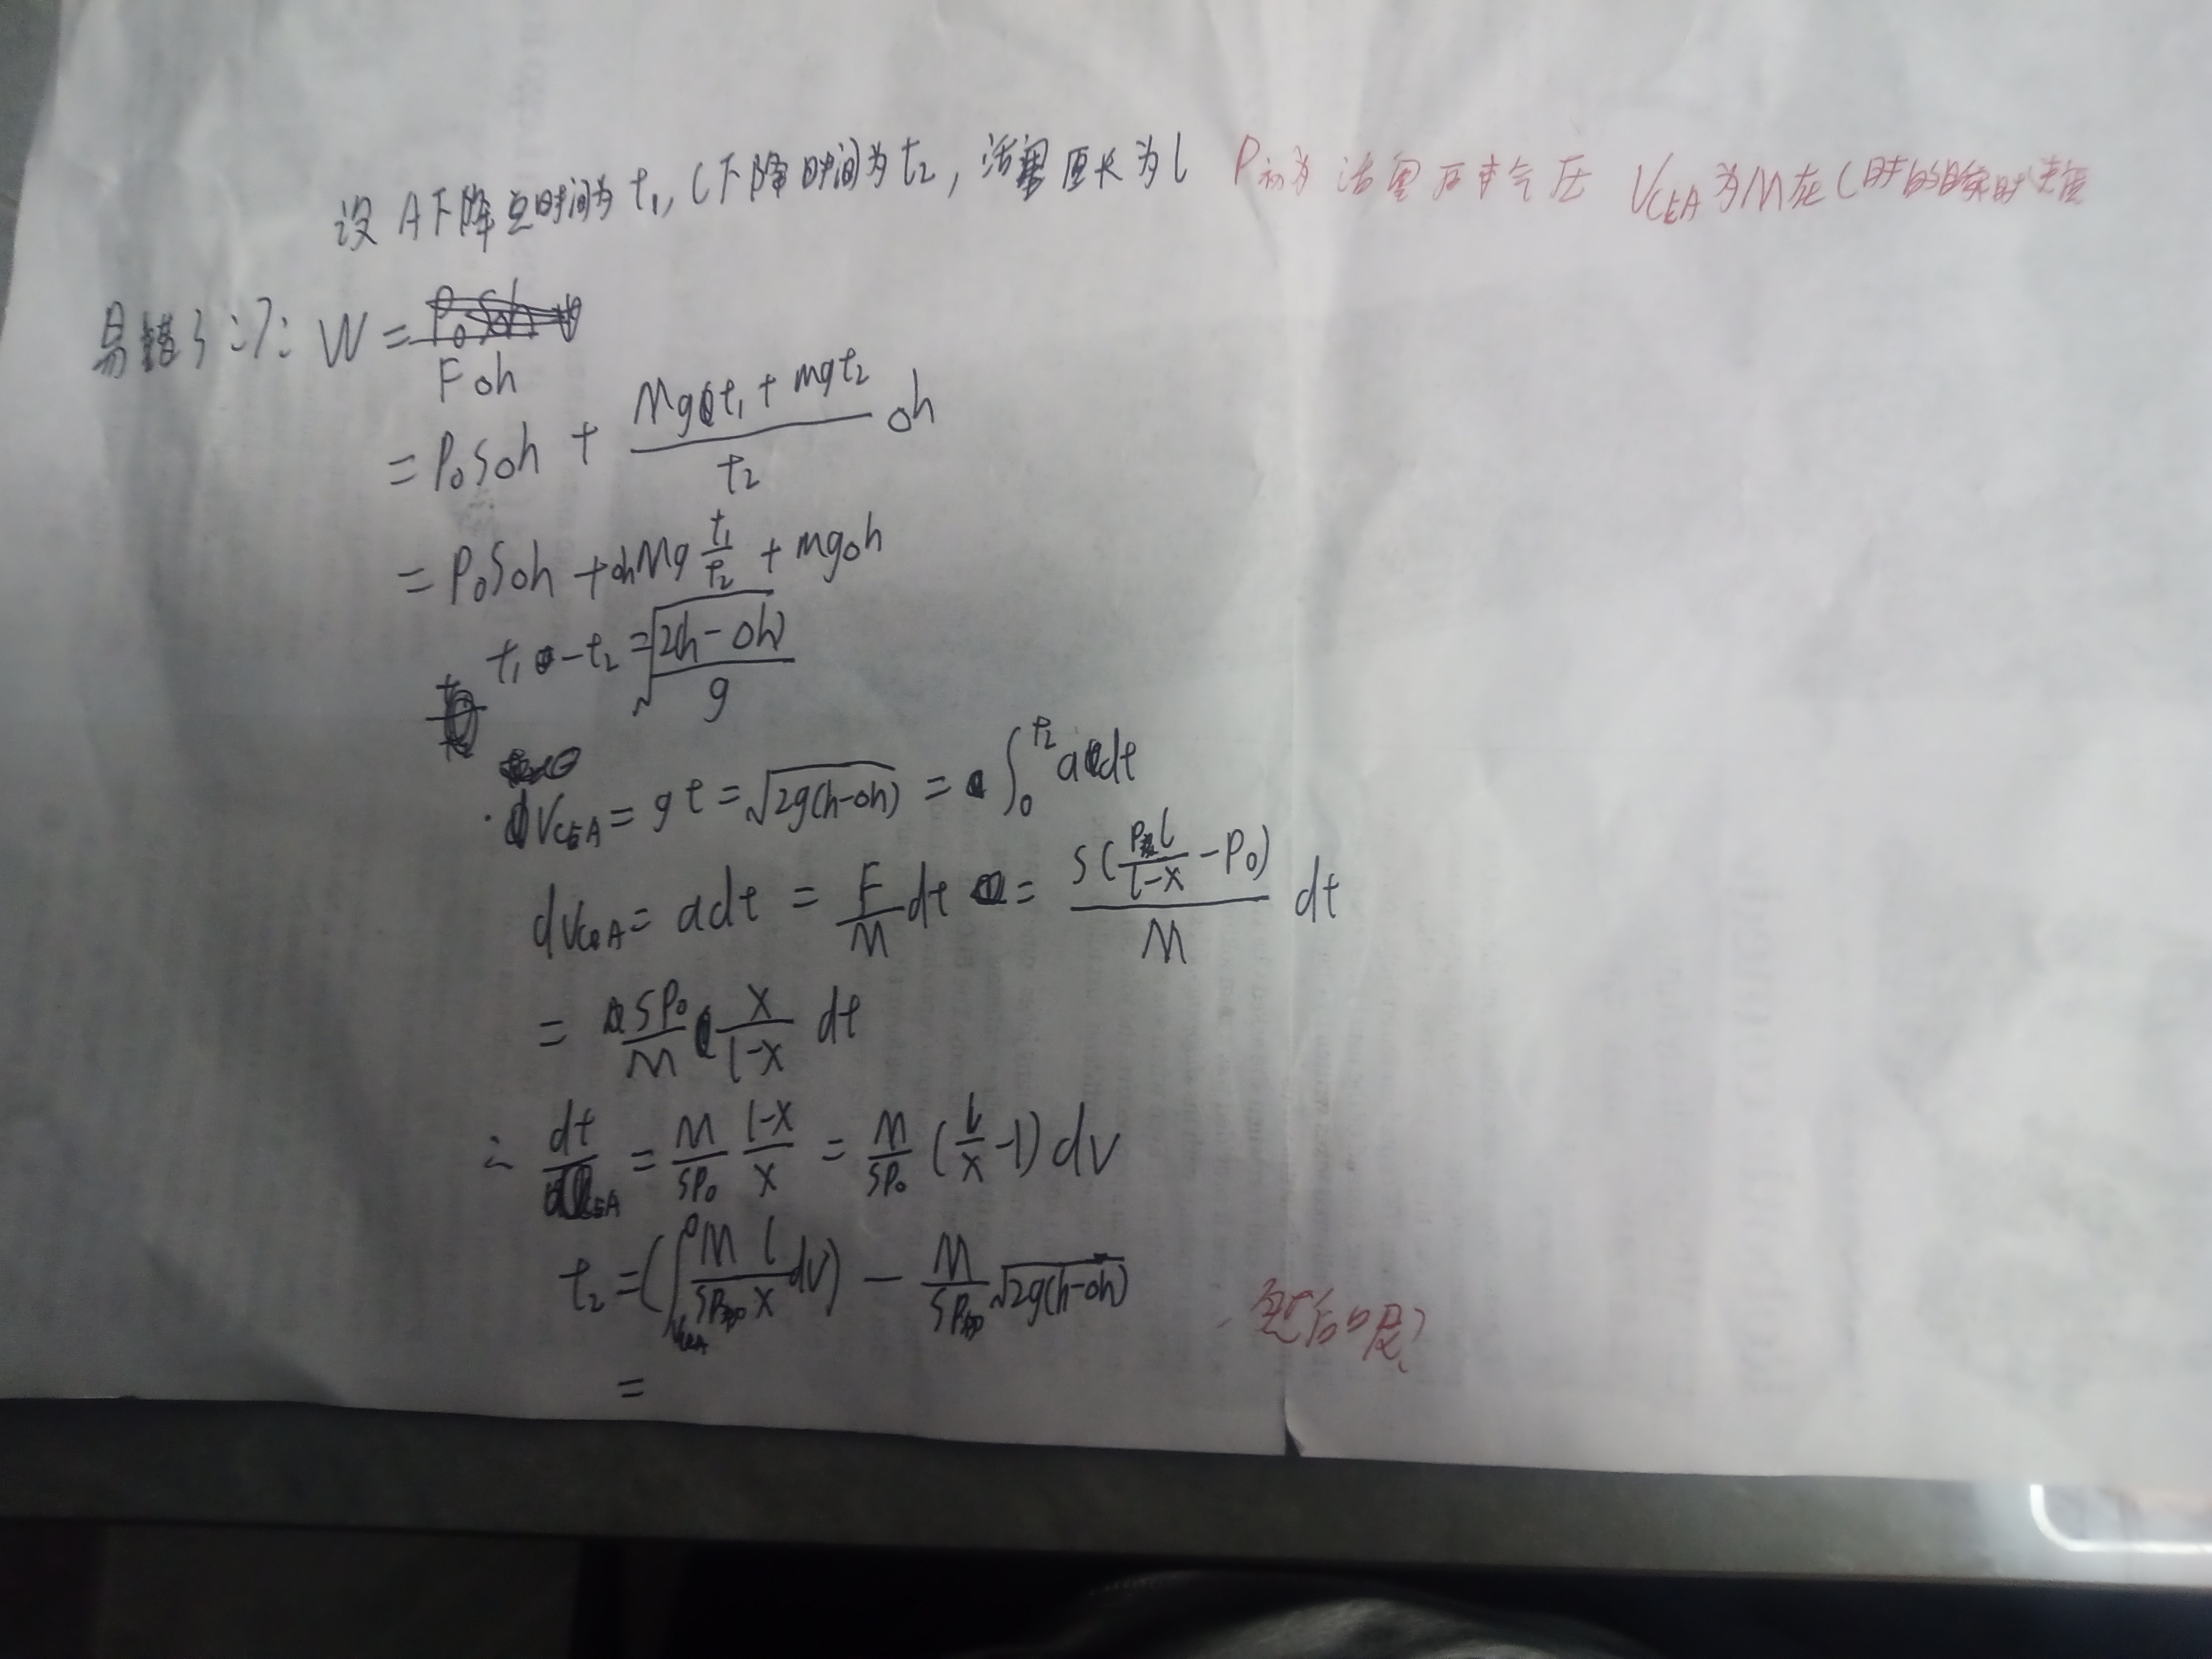 设 A下降总时间为 t₁, C下降时间为 t₂, 活塞原长为 l P初为活塞原本气压 V_C点A为M在C时的瞬时速度
易错3:7: W = FΔh
= P₀SΔh + (Mgt₁ + mgt₂)/t₂ Δh
= P₀SΔh + ΔhMg t₁/t₂ + mgΔh
t₁ - t₂ = √(2(h-Δh)/g)
gt = √(2g(h-Δh)) = ∫₀^t₂ a dt
= adt = F/M dt = S(P初l/(l-x) - P₀)/M dt
= SP₀/M x/(l-x) dt
∴ dt = M/SP₀ (l-x)/x = M/SP₀ (l/x - 1) dv
t₂ = (∫ M l / x dv) - M √(2g(h-Δh))
=